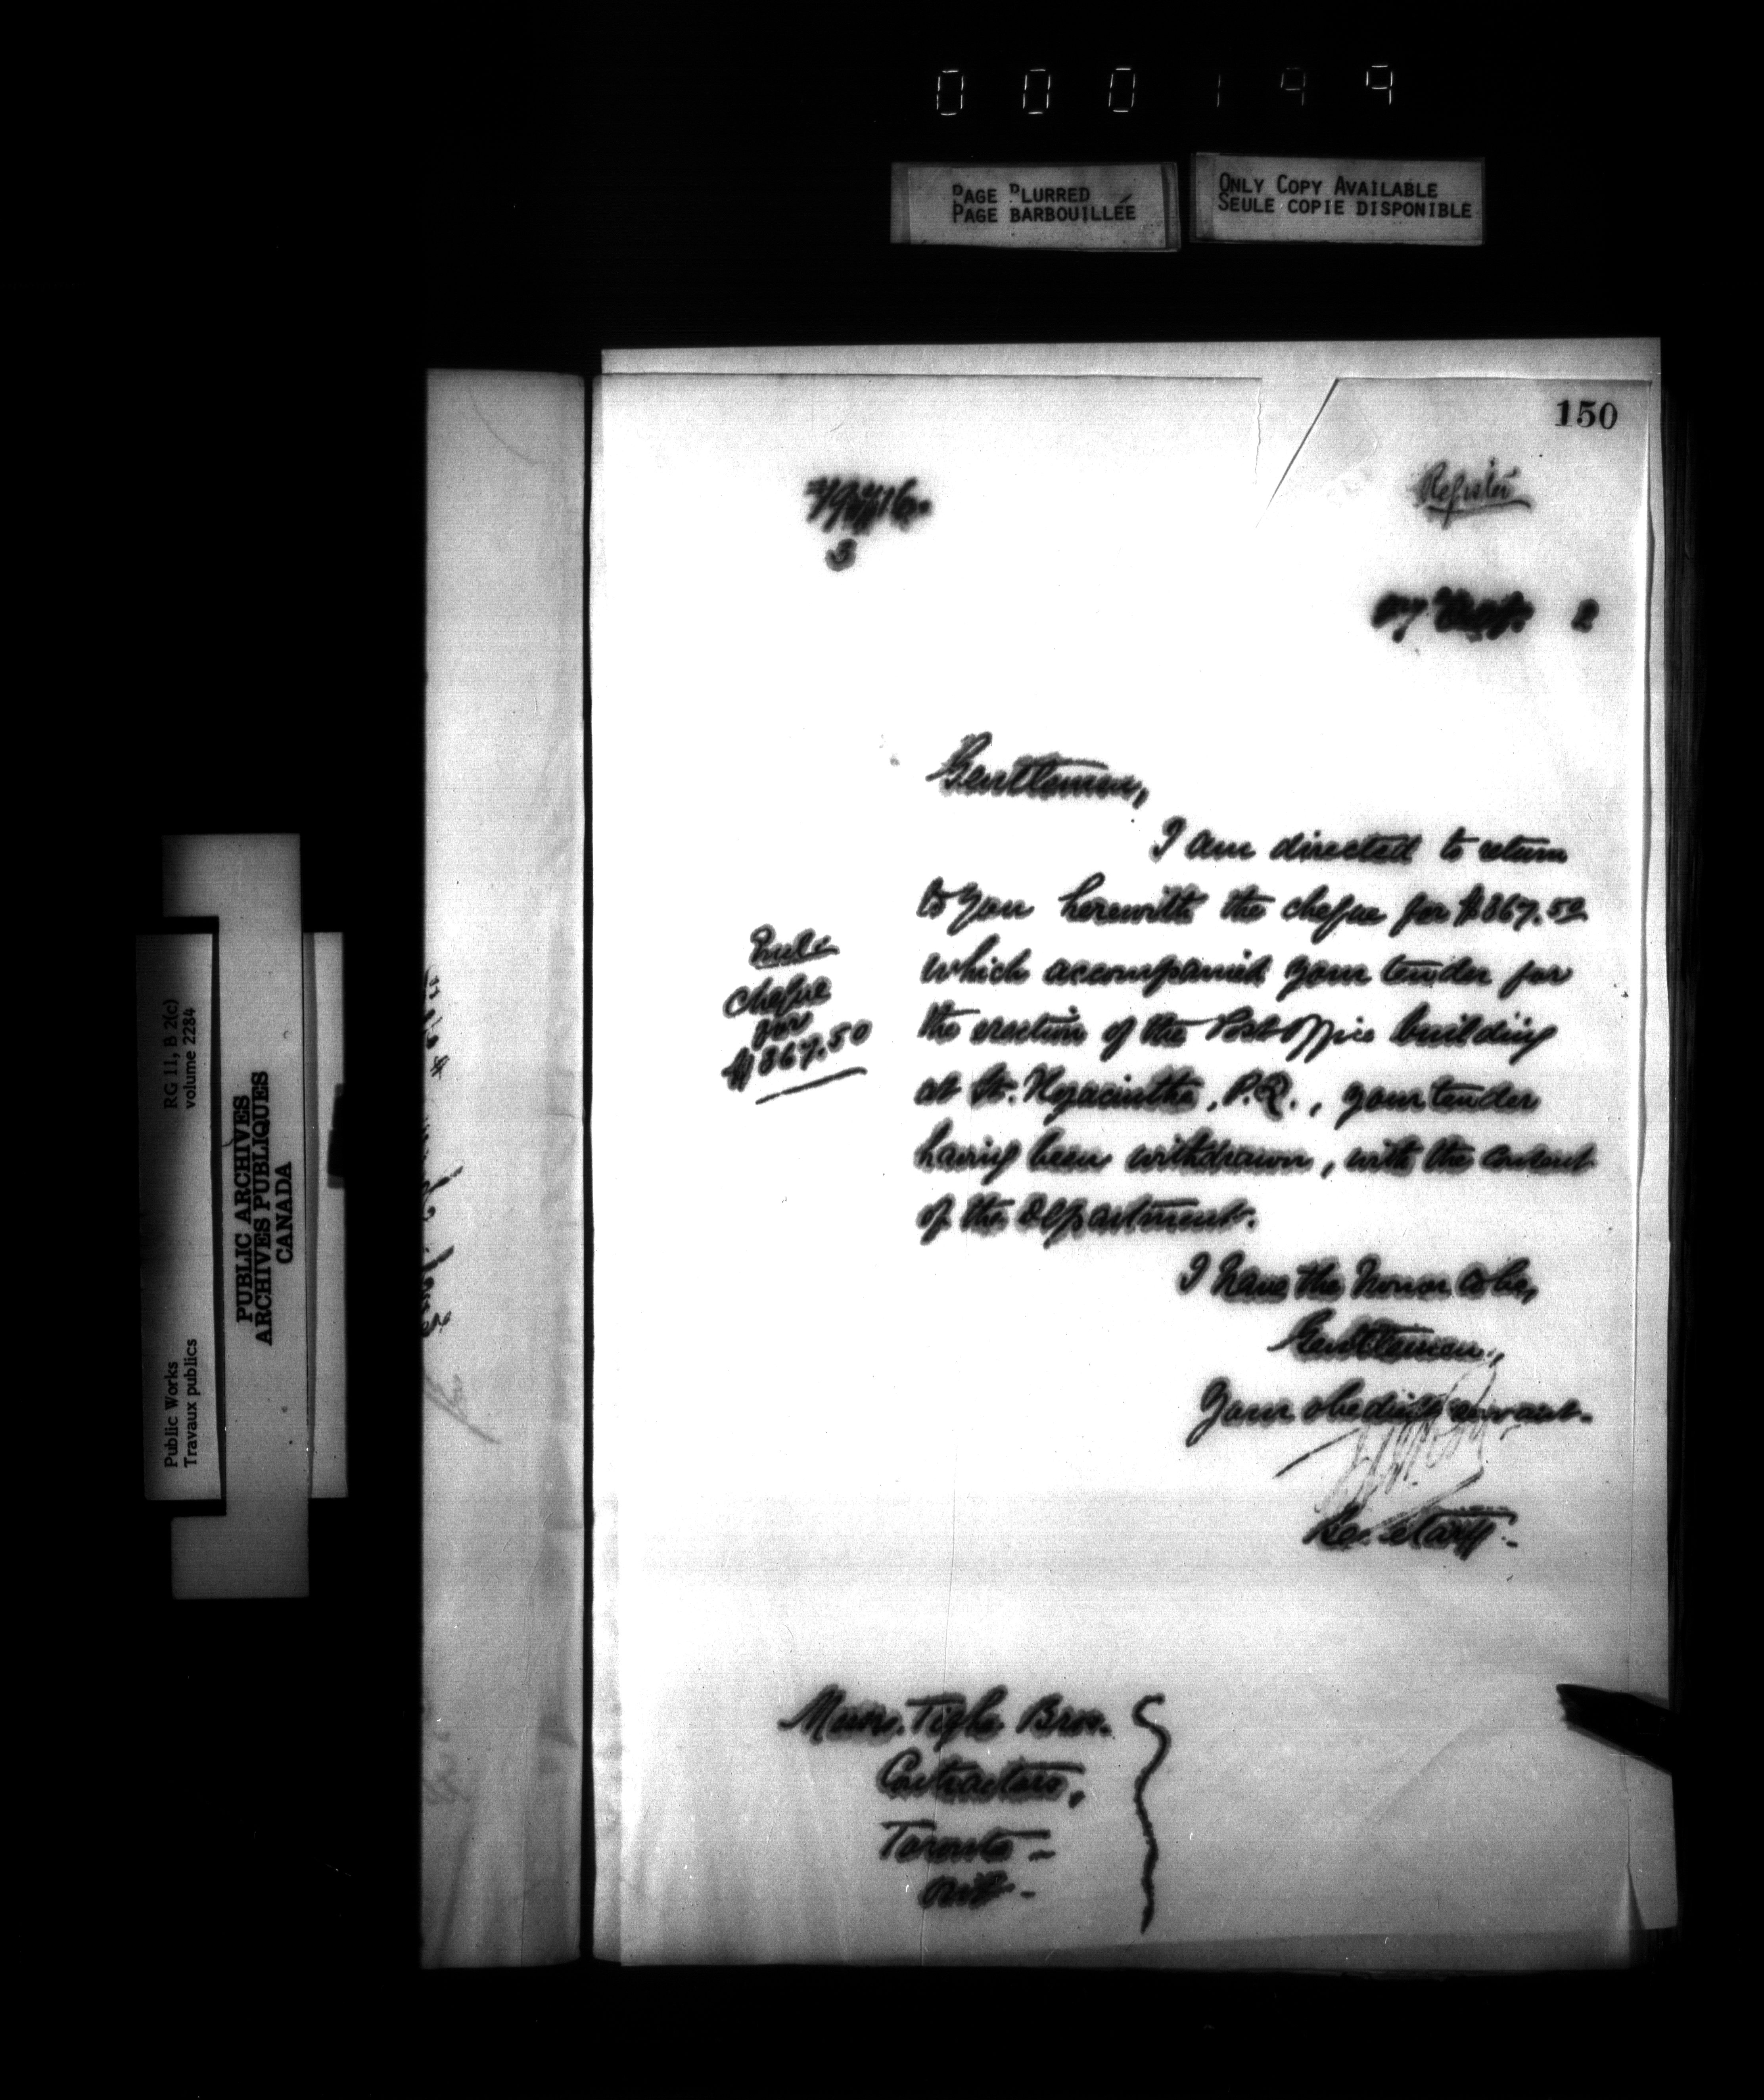 000149
PAGE BLURRED
PAGE BARBOUILLÉE
ONLY COPY AVAILABLE
SEULE COPIE DISPONIBLE
150
Register
3
27 2
Gentlemen,
I am directed to return
to you herewith the cheque for $867.50
which accompanied your tender for
the erection of the Post Office building
at St. Hyacinthe, P.Q., your tender
having been withdrawn, with the consent
of the Department.
Encl.
cheque
for
$867.50
I have the honor to be,
Gentlemen,
Your obedient servant.
Secretary.
Messrs. Tighe Bros.
Contractors,
Toronto -
Ont -
RG 11, B 2(c)
volume 2284
Public Works
Travaux publics
PUBLIC ARCHIVES
ARCHIVES PUBLIQUES
CANADA